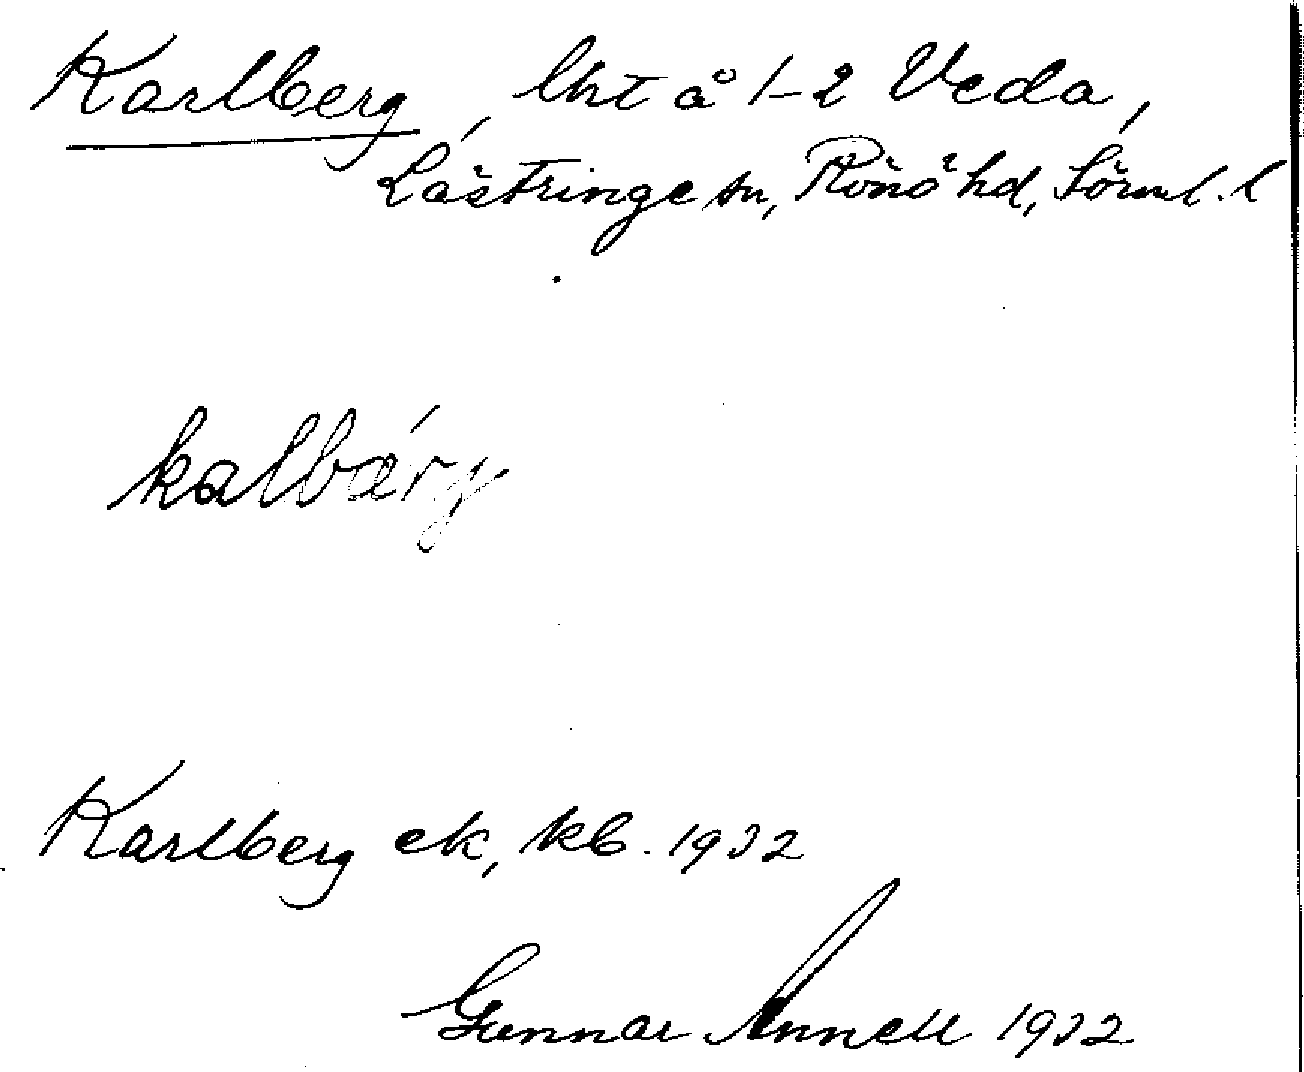 Karlberg, lht å 1-2 Veda,
Lästringe sn, Rönö hd, Sörml. l
kalbärj
Karlberg ek, kb. 1932
Gunnar Annell 1932